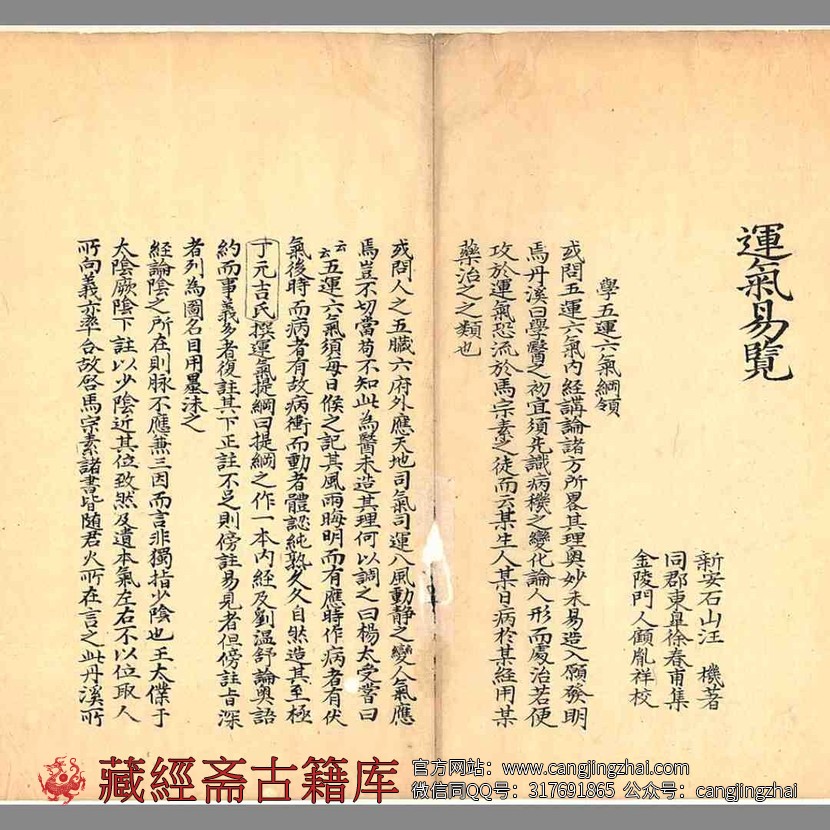 運氣易覽
新安石山汪　機著
同郡東皐徐春甫集
金陵門人顧胤祥校
學五運六氣綱領
或問五運六氣内經講論諸方所畧其理奥妙未易造入願發明
焉丹溪曰學醫之初宜須先識病機之變化論人形而處治若便
攻於運氣恐流於馬宗素之徒而云某生人某日病於某經用某
藥治之之類也
或問人之五臟六府外應天地司氣司運八風動静之變人氣應
焉豈不切當苟不知此為醫未造其理何以調之曰楊太受嘗曰
云五運六氣須每日候之記其風雨晦明而有應時作病者有伏
氣後時而病者有故病衝而動者體認純熟久久自然造其至極
丁元吉氏撰運氣提綱曰提綱之作一本内經及劉温舒論奥語
約而事義多者復註其下正註不足則傍註易見者但傍註旨深
者列為圖名目用墨沬之
經論陰之所在則脉不應兼三因而言非獨指少陰也王太僕于
太陰厥陰下註以少陰近其位致然及遺本氣左右不以位取人
所向義亦率合故啓馬宗素諸書皆随君火所在言之此丹溪所
藏經斋古籍库
官方网站：www.cangjingzhai.com
微信同QQ号：317691865 公众号：cangjingzhai